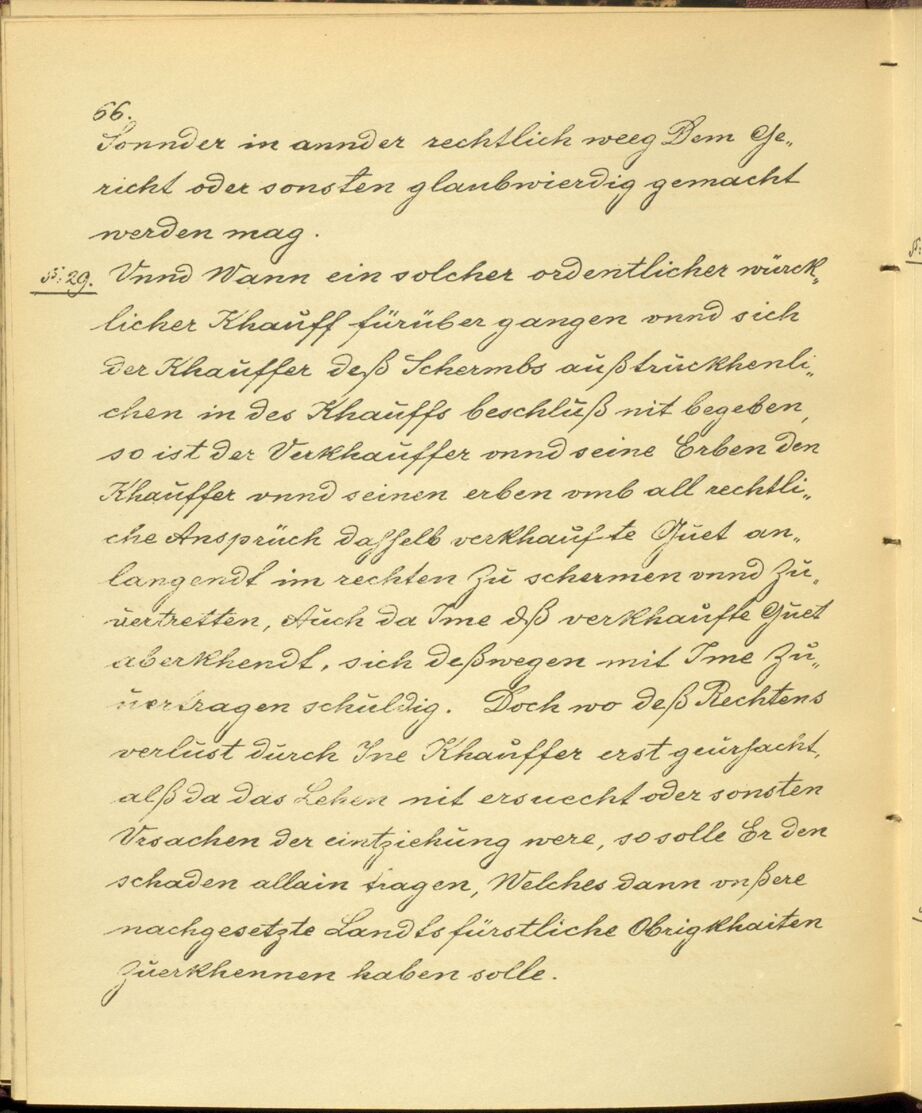 66.
Sonnder in annder rechtlich weeg Dem Ge„
richt oder sonsten glaubwierdig gemacht
werden mag.
§: 29. Vnnd Wann ein solcher ordentlicher würck„
licher Khauff fürüber gangen vnnd sich
der Khauffer deß Schermbs außtruckhenli„
chen in des Khauffs beschluß nit begeben,
so ist der Verkhauffer vnnd seine Erben den
Khauffer vnnd seinen erben vmb all rechtli„
che Ansprüch dasselb verkhaufte Guet an„
langendt im rechten Zu schermen vnnd Zu„
uertretten, Auch da Ime dß verkhaufte Guet
aberkhendt, sich deßwegen mit Ime Zu„
uertragen schuldig. Doch wo deß Rechtens
verlust durch Ine Khauffer erst geursacht,
alß da das Lehen nit ersuecht oder sonsten
Vrsachen der eintziehung were, so solle Er den
schaden allain tragen, Welches dann vnßere
nachgesetzte Landtsfürstliche Obrigkhaiten
Zuerkhennen haben solle.